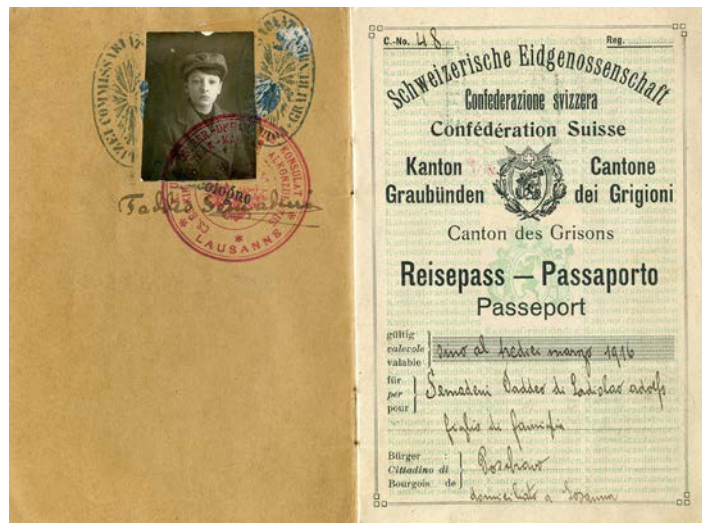 POLIZEI COMMISSARIAT
GRAUBÜN
KONSULAT
LAUSANNE
Taddeo Semadeni
C.-No. 48
Reg.
Schweizerische Eidgenossenschaft
Confederazione svizzera
Confédération Suisse
Kanton Graubünden
Cantone dei Grigioni
Canton des Grisons
Reisepass — Passaporto
Passeport
gültig
valevole
valable
sino al tredici marzo 1916
für
per
pour
Semadeni Taddeo di Ladislao adolfo
figlio di famiglia
Bürger
Cittadino di
Bourgois de
Poschiavo
domiciliato a Losanna